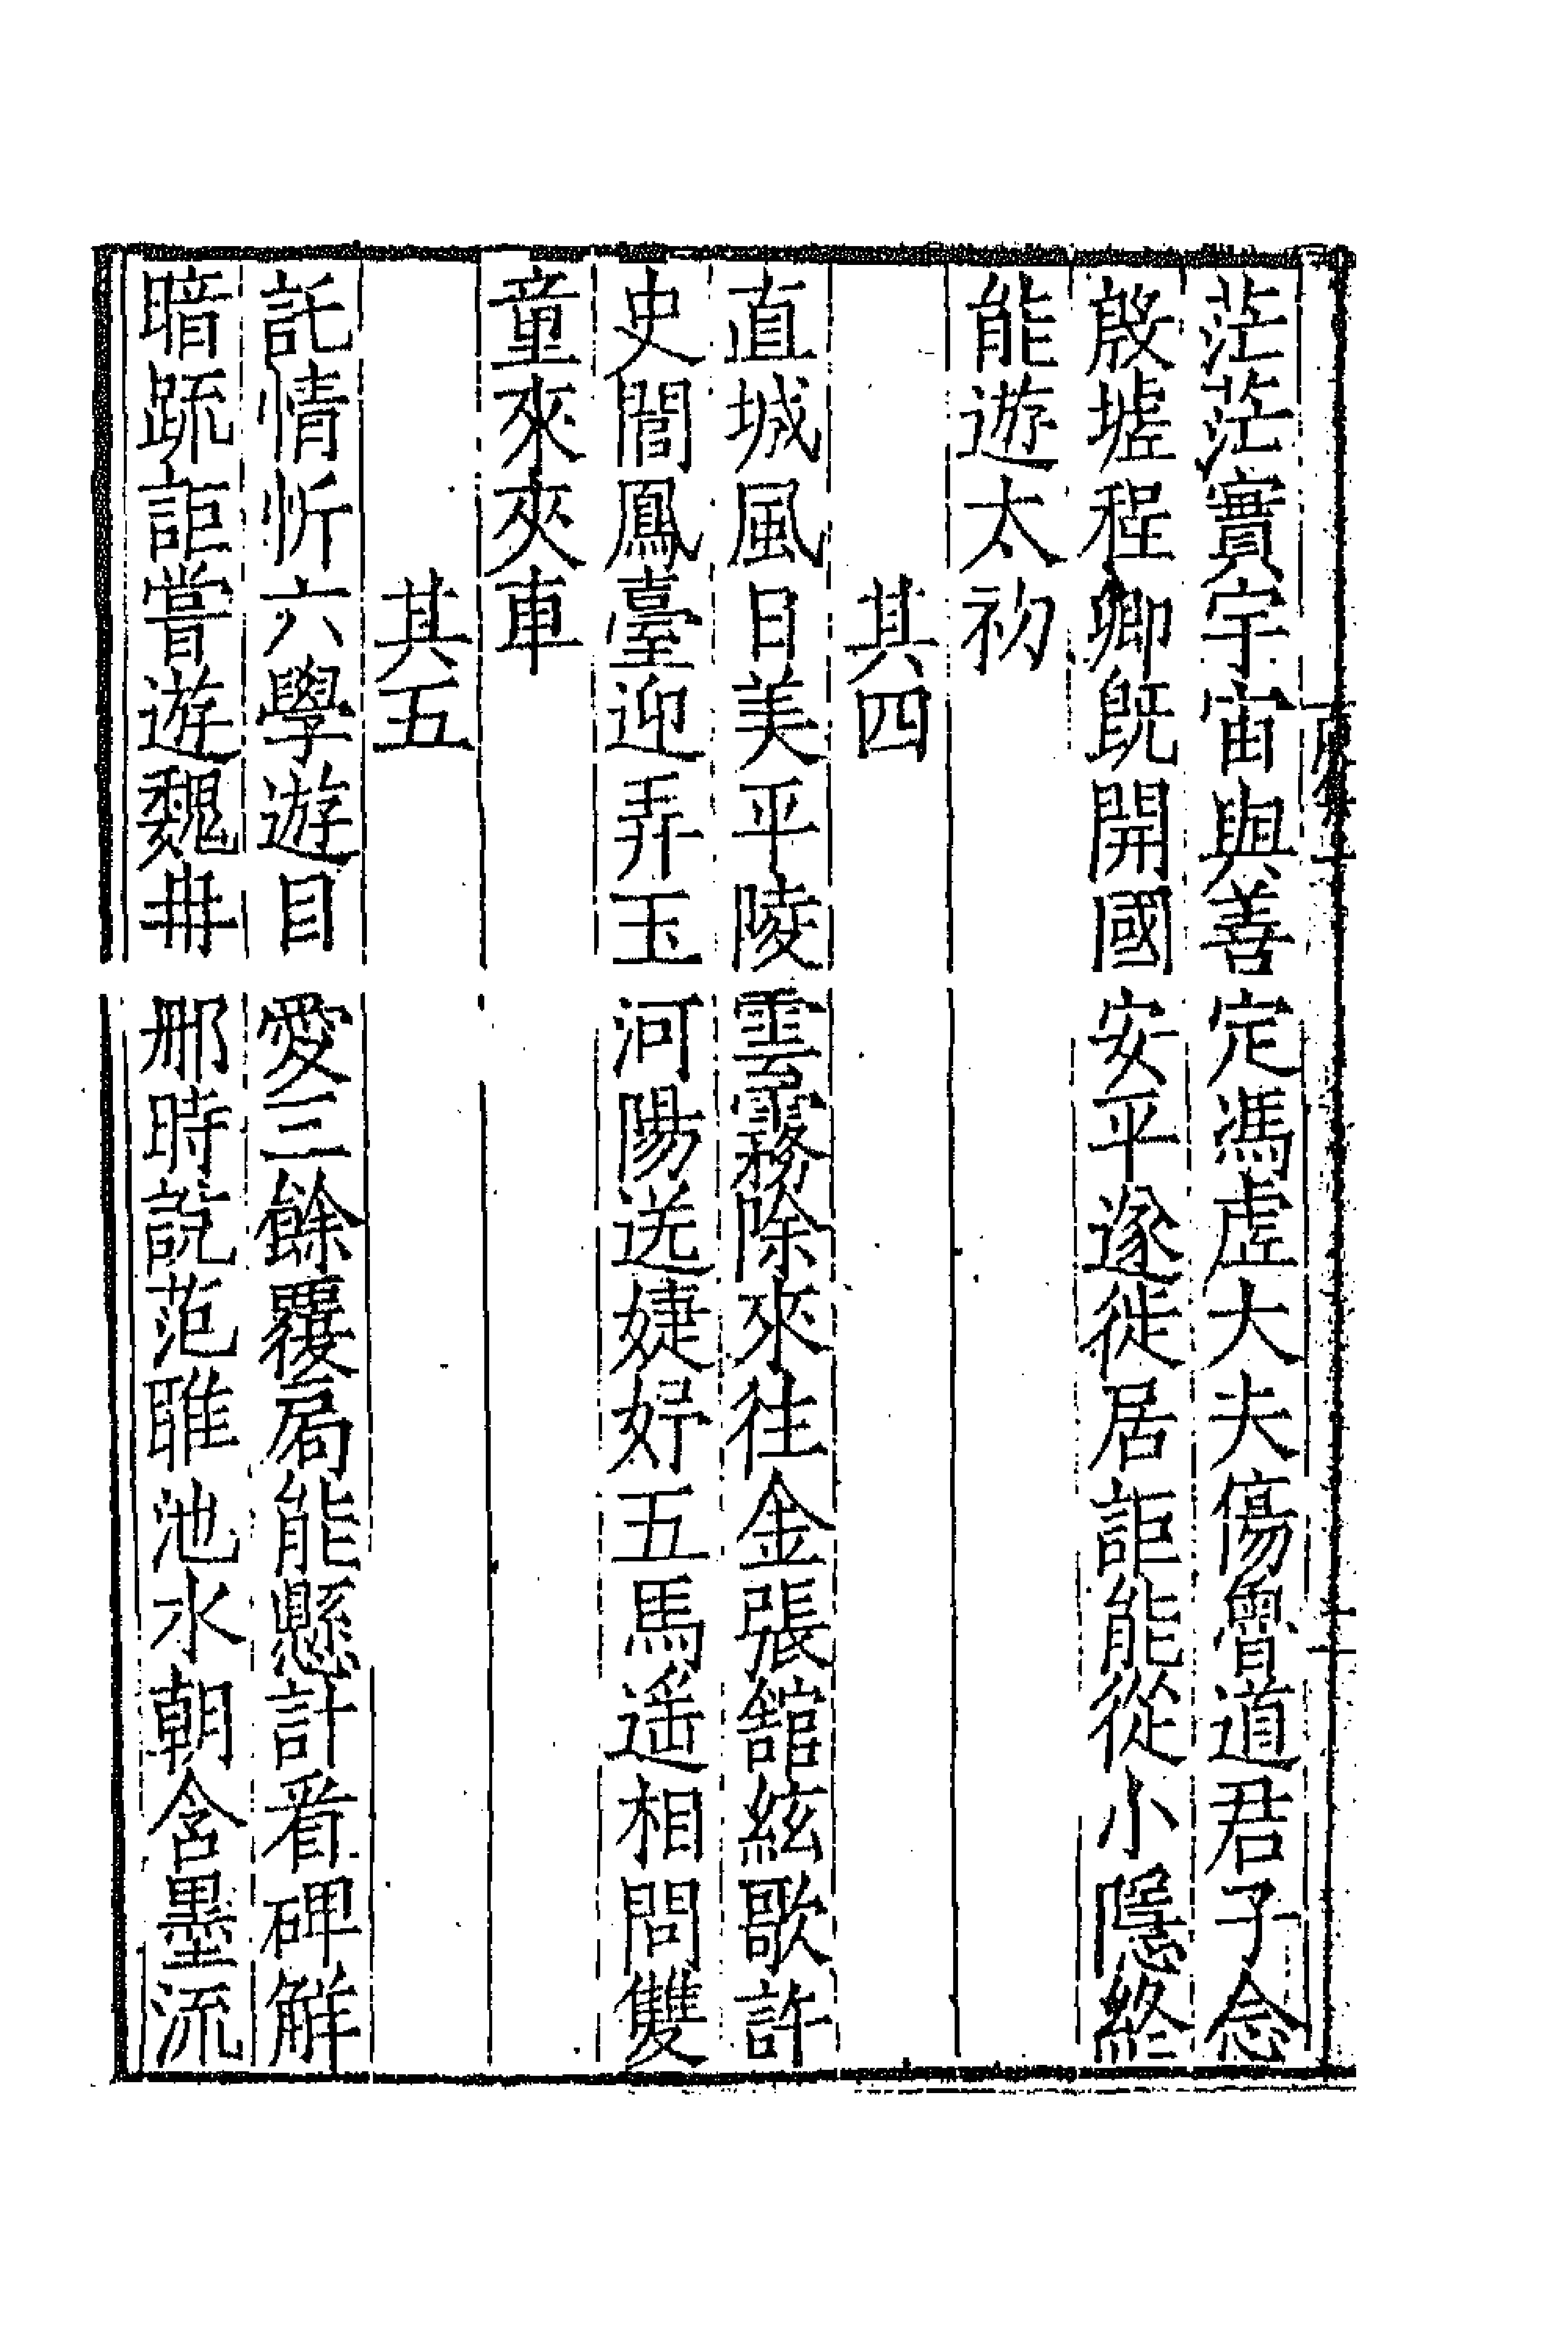 茫茫實宇宙與善定馮虛大夫傷魯道君子念
殷墟程卿旣開國安平遂徙居詎能從小隱終
能遊太初
其四
直城風日美平陵雲霧除來徃金張舘絃歌許
史閭鳳臺迎弄玉河陽送婕妤五馬遥相問雙
童來夾車
其五
託情忻六學遊目愛三餘覆局能懸計看碑解
暗䟽詎嘗遊魏冉那時說范雎池水朝含墨流